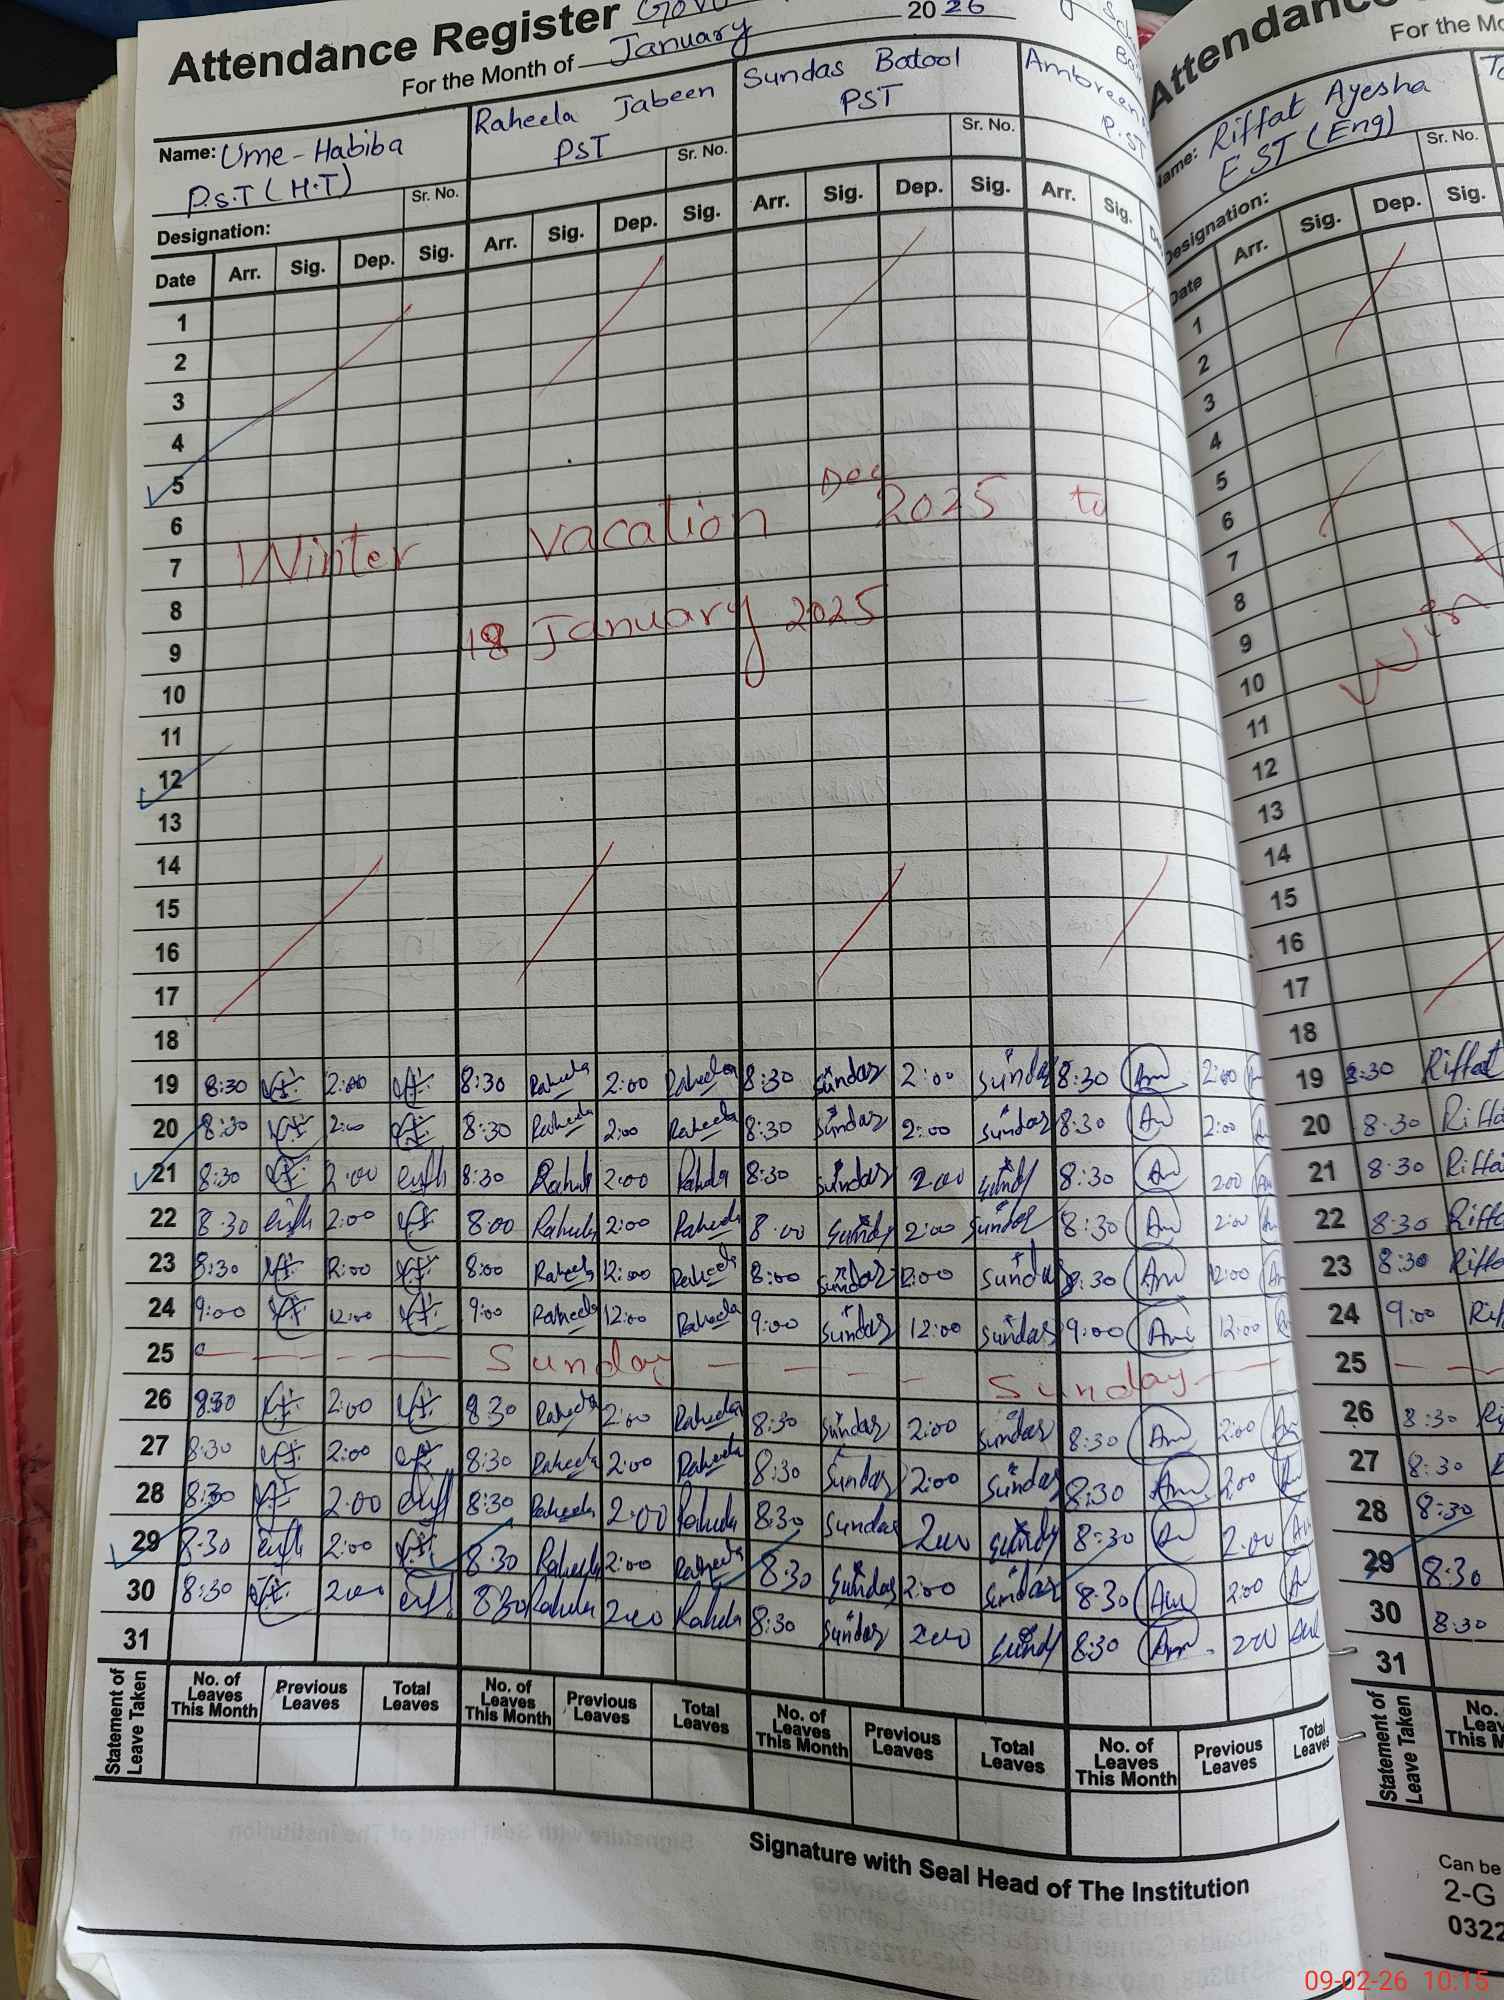 Attendance Register Govt
2026
For the Month of January
Name: Ume-Habiba
P.S.T (H.T)
Sr. No.
Designation:
Raheela Jabeen
PST
Sr. No.
Sundas Batool
PST
Sr. No.
Ambreen
P.ST
Date Arr. Sig. Dep. Sig. Arr. Sig. Dep. Sig. Arr. Sig. Dep. Sig. Arr. Sig.
1
2
3
4
5
6
7
8
9
10
11
12
13
14
15
16
17
18
Winter vacation Dec 2025 to
18 January 2025
19 8:30 2:00 8:30 Raheela 2:00 Raheela 8:30 Sundas 2:00 Sundas 8:30 Am 2:00
20 8:30 2:00 8:30 Raheela 2:00 Raheela 8:30 Sundas 2:00 Sundas 8:30 Am 2:00
21 8:30 2:00 8:30 Raheela 2:00 Raheela 8:30 Sundas 2:00 8:30 Am 2:00
22 8:30 2:00 8:00 Raheela 2:00 Raheela 8:00 2:00 Sundas 8:30 Am 2:00
23 8:30 12:00 8:00 Raheela 12:00 Raheela 8:00 Sundas 12:00 Sunda 8:30 Am 12:00
24 9:00 12:00 9:00 Raheela 12:00 Raheela 9:00 Sundas 12:00 Sundas 9:00 Am 12:00
25 Sunday Sunday
26 8:30 2:00 8:30 Raheela 2:00 Raheela 8:30 Sundas 2:00 Sundas 8:30 Am 2:00
27 8:30 2:00 8:30 Raheela 2:00 Raheela 8:30 Sundas 2:00 Sundas 8:30 Am 2:00
28 8:30 2:00 8:30 Raheela 2:00 Raheela 8:30 Sundas 2:00 8:30 2:00
29 8:30 2:00 8:30 Raheela 2:00 Raheela 8:30 Sundas 2:00 Sundas 8:30 Am 2:00
30 8:30 2:00 8:30 Raheela 2:00 Raheela 8:30 Sundas 2:00 8:30 Am 2:00
31
Statement of Leave Taken
No. of Leaves This Month Previous Leaves Total Leaves No. of Leaves This Month Previous Leaves Total Leaves No. of Leaves This Month Previous Leaves Total Leaves No. of Leaves This Month Previous Leaves Total Leaves
Signature with Seal Head of The Institution
Attendance
For the Mo
Name: Riffat Ayesha
EST (Eng)
Sr. No.
Designation:
Date Arr. Sig. Dep. Sig.
1
2
3
4
5
6
7
8
9
10
11
12
13
14
15
16
17
18
Win
19 8:30 Riffat
20 8:30 Riffa
21 8:30 Riffa
22 8:30 Riff
23 8:30 Riff
24 9:00 Rif
25
26 8:30 Ri
27 8:30
28 8:30
29 8:30
30 8:30
31
Statement of Leave Taken
No.
Leav
This M
Can be
2-G
0322
09-02-26 10:15